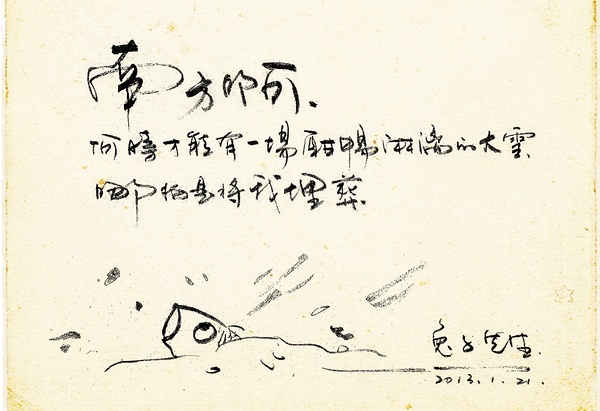 南方
何時才能有一場酣暢淋漓的大雪
哪怕是將我埋葬
兔子先生.
2013.1.21.